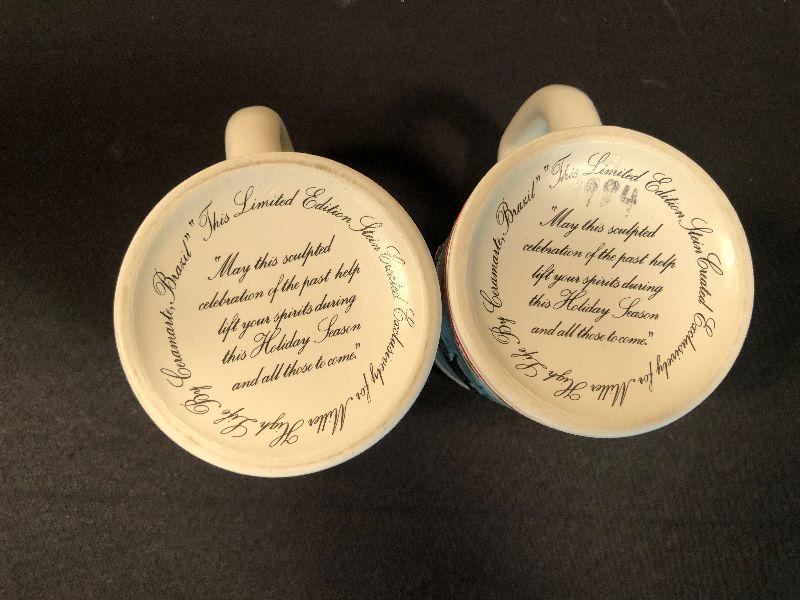 "This Limited Edition Stein Created Exclusively for Miller High Life By Ceramarte, Brazil"
"May this sculpted
celebration of the past help
lift your spirits during
this Holiday Season
and all those to come."
"This Limited Edition Stein Created Exclusively for Miller High Life By Ceramarte, Brazil"
1994
"May this sculpted
celebration of the past help
lift your spirits during
this Holiday Season
and all those to come."